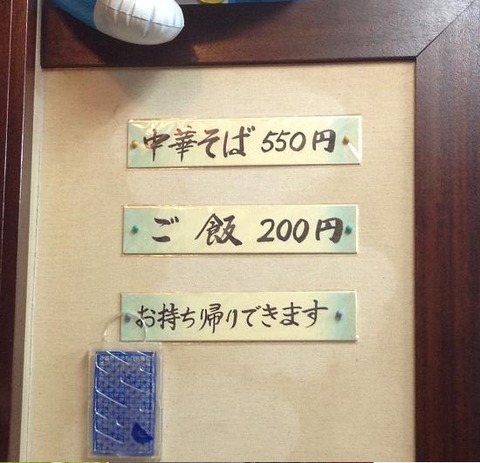 中華そば 550円
ご飯 200円
お持ち帰りできます